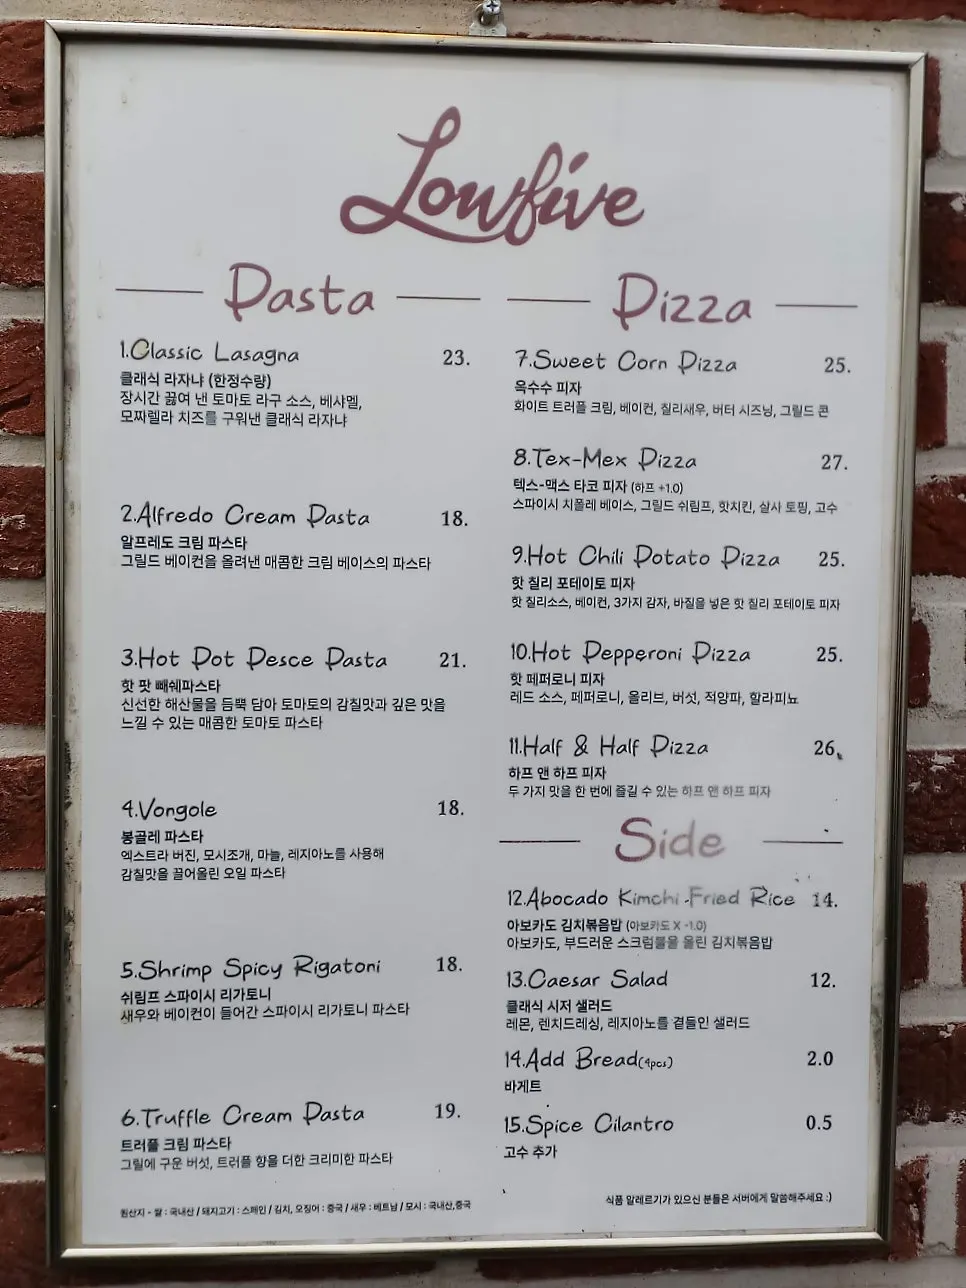 Lowfive
Pasta
1.Classic Lasagna 23.
클래식 라자냐 (한정수량)
장시간 끓여 낸 토마토 라구 소스, 베샤멜,
모짜렐라 치즈를 구워낸 클래식 라자냐
2.Alfredo Cream Pasta 18.
알프레도 크림 파스타
그릴드 베이컨을 올려낸 매콤한 크림 베이스의 파스타
3.Hot Pot Pesce Pasta 21.
핫 팟 빼쉐파스타
신선한 해산물을 듬뿍 담아 토마토의 감칠맛과 깊은 맛을
느낄 수 있는 매콤한 토마토 파스타
4.Vongole 18.
봉골레 파스타
엑스트라 버진, 모시조개, 마늘, 레지아노를 사용해
감칠맛을 끌어올린 오일 파스타
5.Shrimp Spicy Rigatoni 18.
쉬림프 스파이시 리가토니
새우와 베이컨이 들어간 스파이시 리가토니 파스타
6.Truffle Cream Pasta 19.
트러플 크림 파스타
그릴에 구운 버섯, 트러플 향을 더한 크리미한 파스타
원산지 - 쌀 : 국내산 / 돼지고기 : 스페인 / 김치, 오징어 : 중국 / 새우 : 베트남 / 모시 : 국내산,중국
Pizza
7.Sweet Corn Pizza 25.
옥수수 피자
화이트 트러플 크림, 베이컨, 칠리새우, 버터 시즈닝, 그릴드 콘
8.Tex-Mex Pizza 27.
텍스-맥스 타코 피자 (하프 +1.0)
스파이시 치폴레 베이스, 그릴드 쉬림프, 핫치킨, 살사 토핑, 고수
9.Hot Chili Potato Pizza 25.
핫 칠리 포테이토 피자
핫 칠리소스, 베이컨, 3가지 감자, 바질을 넣은 핫 칠리 포테이토 피자
10.Hot Pepperoni Pizza 25.
핫 페퍼로니 피자
레드 소스, 페퍼로니, 올리브, 버섯, 적양파, 할라피뇨
11.Half & Half Pizza 26.
하프 앤 하프 피자
두 가지 맛을 한 번에 즐길 수 있는 하프 앤 하프 피자
Side
12.Abocado Kimchi-Fried Rice 14.
아보카도 김치볶음밥 (아보카도 X -1.0)
아보카도, 부드러운 스크럼블을 올린 김치볶음밥
13.Caesar Salad 12.
클래식 시저 샐러드
레몬, 렌치드레싱, 레지아노를 곁들인 샐러드
14.Add Bread(4pcs) 2.0
바게트
15.Spice Cilantro 0.5
고수 추가
식품 알레르기가 있으신 분들은 서버에게 말씀해주세요 :)